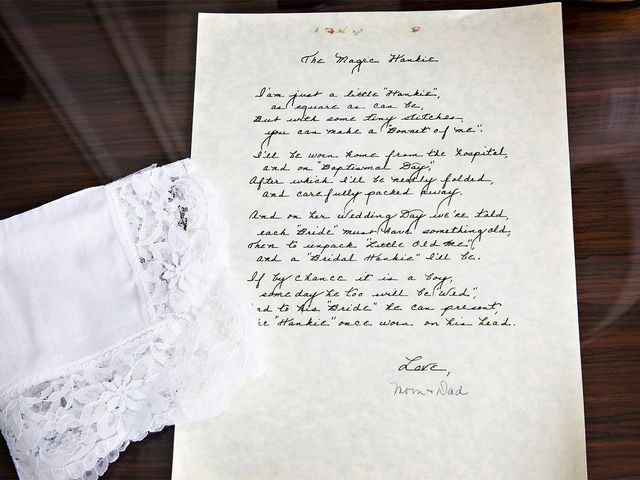 The Magic Hankie
I'am just a little "Hankie",
as square as can be,
But with some tiny stitches,
you can make a "Bonnet of me".
I'll be worn home from the hospital,
and on "Baptismal Day,"
After which I'll be neatly folded,
and carefully packed away.
And on her Wedding Day we're told,
each "Bride" must have something old,
Then to unpack "Little Old Me",
and a "Bridal Hankie" I'll be.
If by chance it is a boy,
some day he too will be "Wed",
to his "Bride" he can present,
"Hankie" once worn on his head.
Love,
Mom & Dad